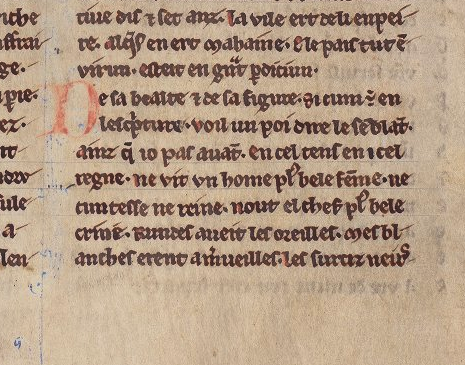 tiue dis ⁊ set anz. la uile ert deli enpei
re. alq̄s en ert mahaine. ⁊ le pais tut ē
uirun. esteit en g̃nt p̲diciun.
De sa bealte ⁊ de sa figure. si cum ē en
lescͥpture. uoil un poi dire le sēblāt.
ainz q̄ io pas auāt. en cel tens en icel
regne. ne uit un home pl᷒ bele fēme. ne
cuntesse ne reine. nout el chef pl᷒ bele
crine. Rundes aueit les oreilles. mes bl
anches erent a m̃ueilles. les surciz neirs